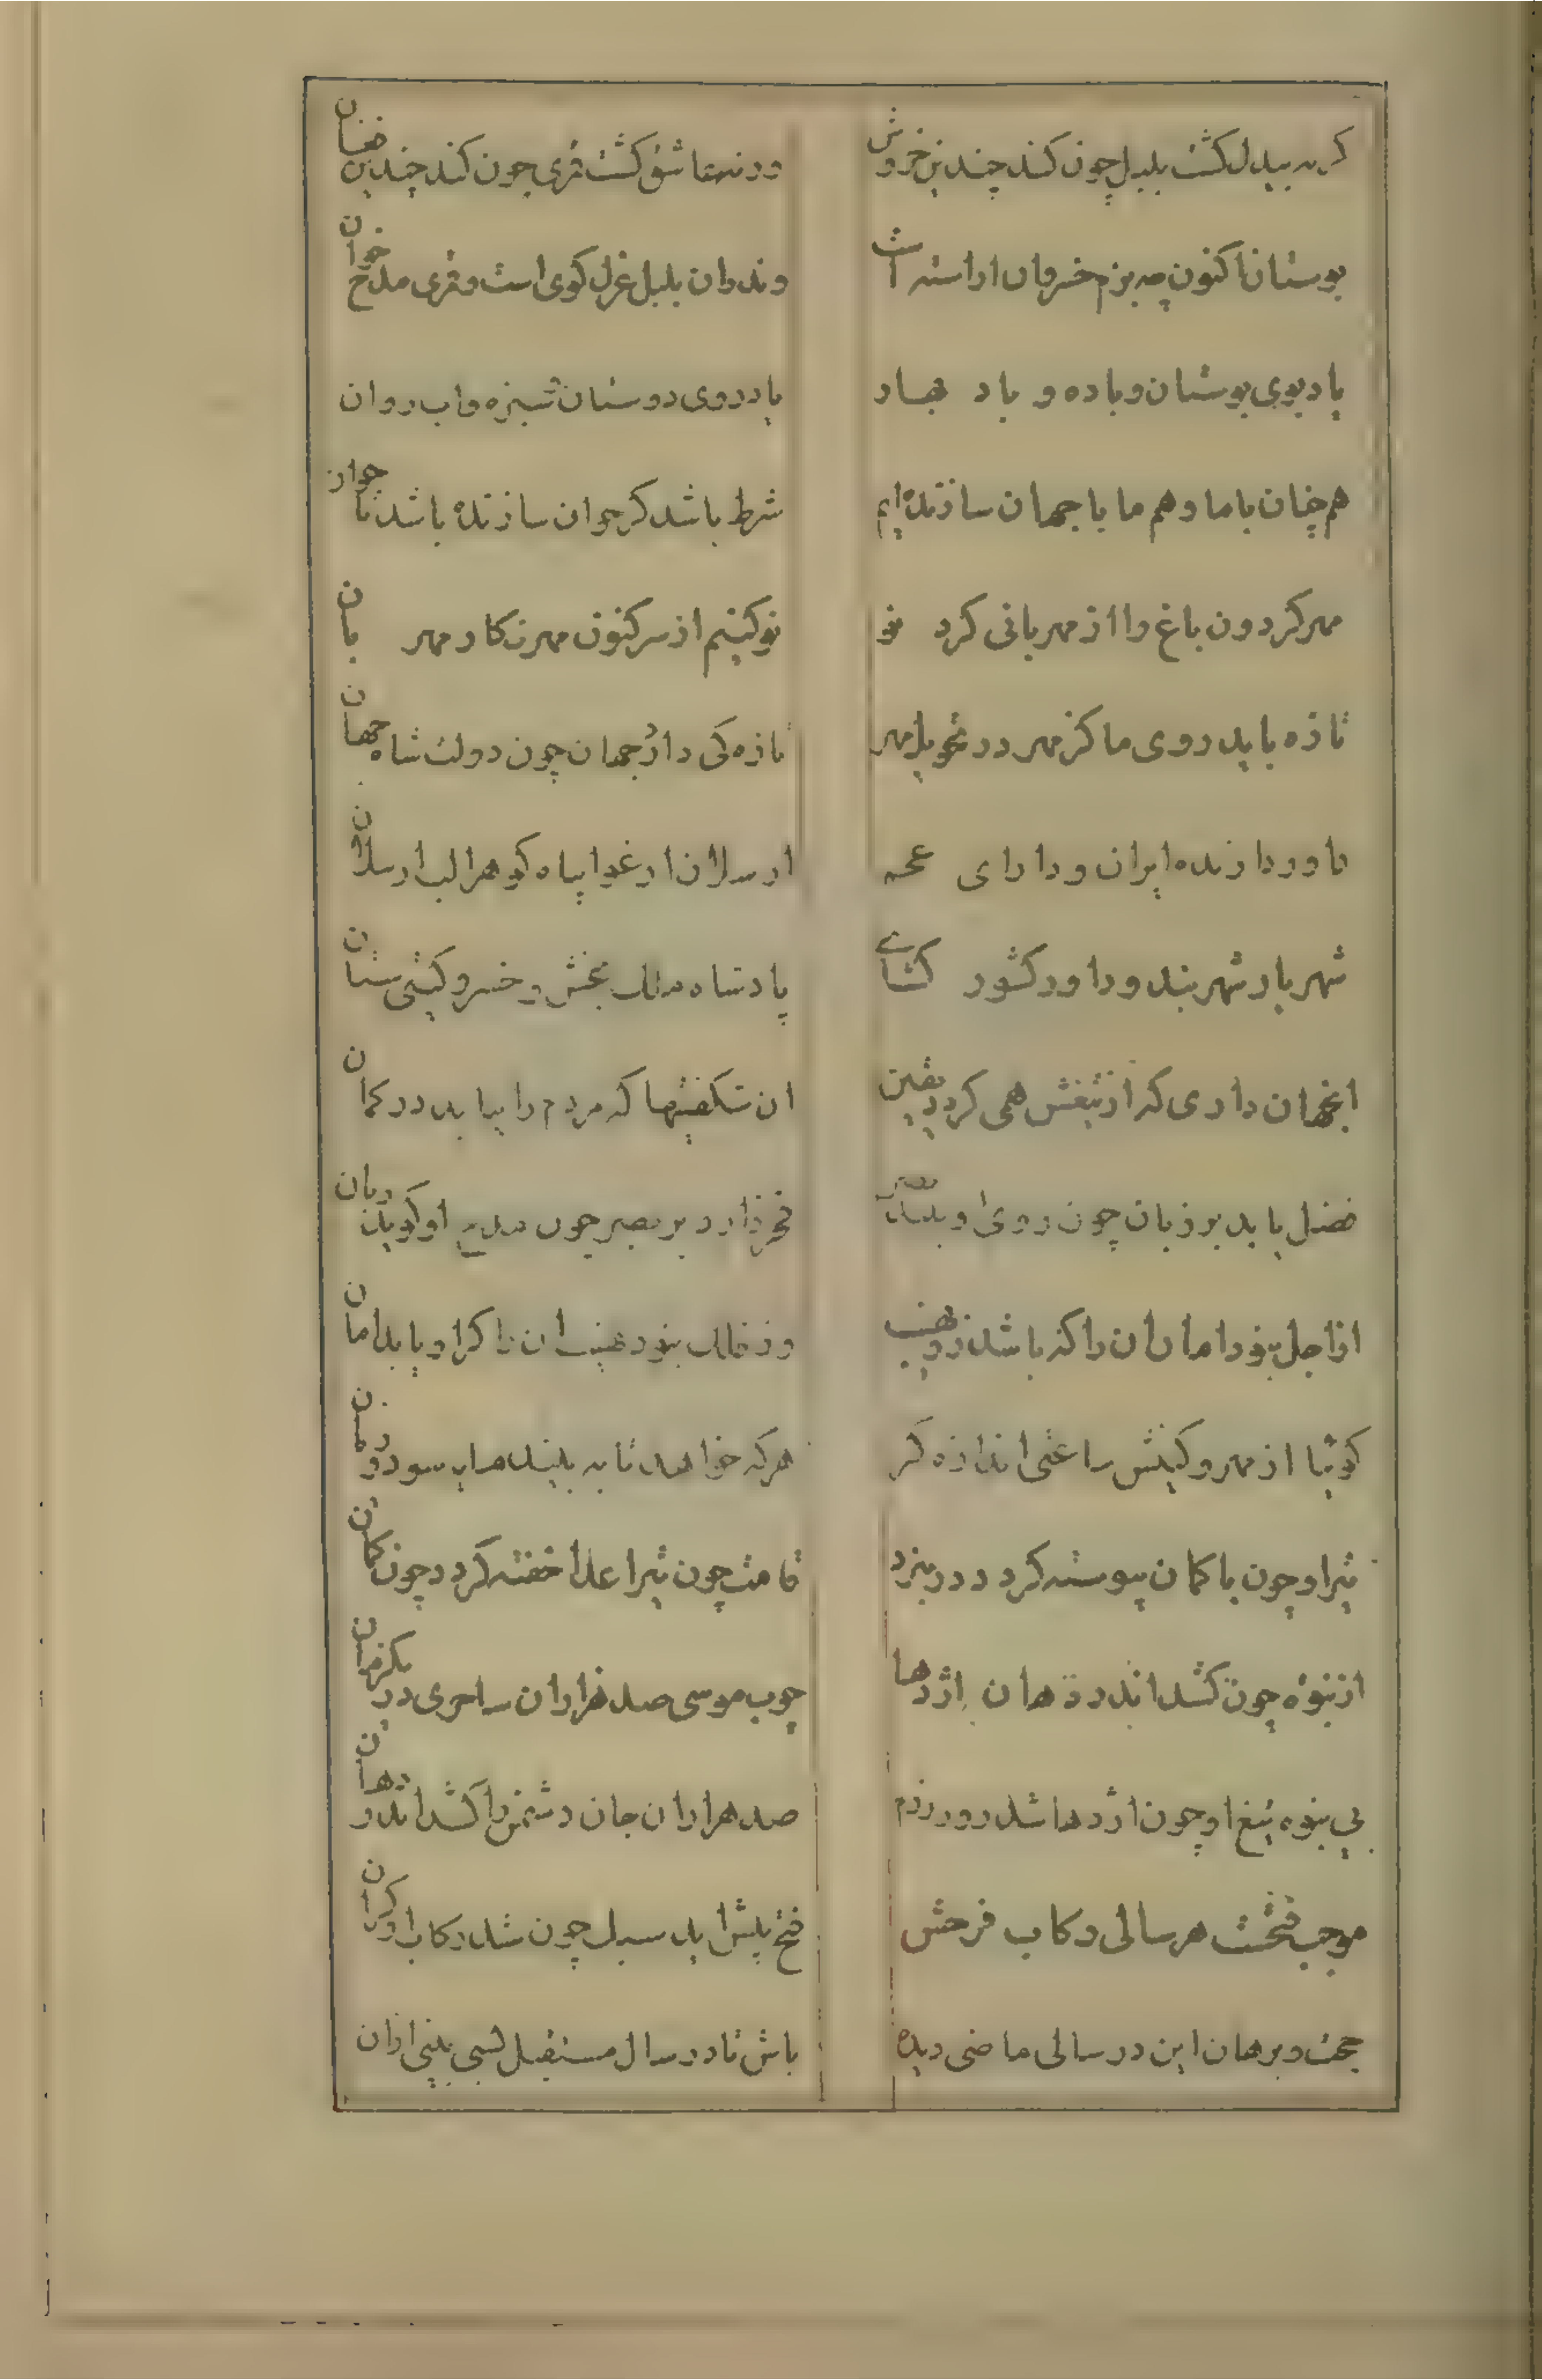 گر نه بیدل گشت بلبل چون کند چندین خروش
ور نه عاشق گشت قمری چون کند چندین فغان
بوستان اکنون چه بزم خسروان اراسته است
وندران بلبل غزل کوی است و قمری مدح خوان
باد بوی بوستان و باده و باد بهار
یاد روی دوستان سبزه و اب روان
هم جهان با ما و هم ما با جهان سازنده ایم
شرط باشد کر جوان سازنده باشد با جوان
مهر کردون باغ را از مهربانی کرد نو
نو کنیم از سر کنون مهر نکار مهربان
تازه باید روی ما کز مهر در تحویل مهر
تازه کی دارد جهان چون دولت شاه جهان
داور دارنده ایران و دارای عجم
ارسلان ارغو پناه کوهر الب ارسلان
شهریار شهربند و داور کشور کشای
پادشاه ملک بخش و خسرو کیتی ستان
ا جهان داری که از تیغش همی کردد یقین
ان شکفتیها که مردم را نیاید در کمان
فضل یابد بر زبان چون روی او بیند بصر
فخر دارد بر بصر چون مدح او کوید زبان
از اجل نبود امان ان را که باشد زو نهیب
وز فلک نبود نهیب ان را که او یابد امان
کوئیا از مهر و کینش ساختی اندازه کر
هر که خواهد تا به بیند مایه سود و زیان
تیر او چون با کمان پیوسته کردد در نبرد
قامت چون تیر اعدا خفته کردد چون کمان
از نبوه چون کشد اندر دهان اژدها
چوب موسی صد هزاران ساحری در یک زمان
بی نبوه تیغ او چون اژدها شد روز رزم
صد هزاران جان دشمن را کشد اندر دهان
موجب فتحست هر سالی رکاب فرخش
فتح پیش اید سبک چون شد رکاب او کران
حجت و برهان این در سالی ماضی دیده
باش تا در سال مستقبل بسی بینی ازان